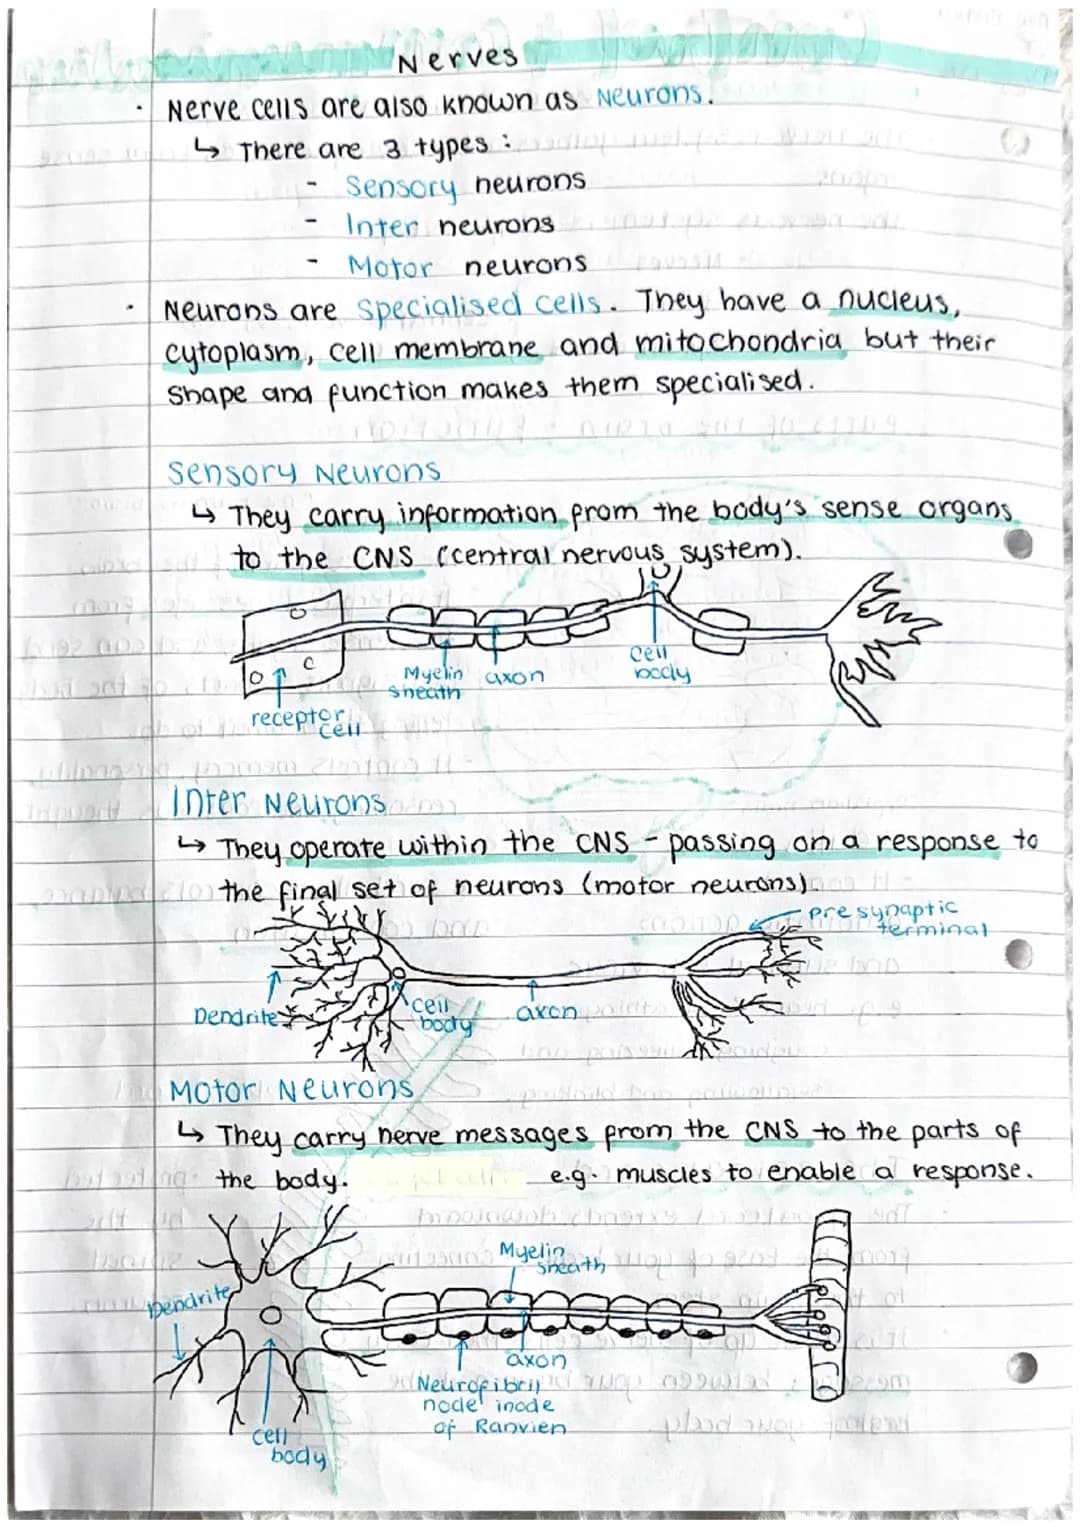 Nerves
· Nerve cells are also known as Neurons.
↳ There are 3 types:
- Sensory neurons
- Inter neurons
- Motor neurons
· Neurons are specialised cells. They have a nucleus,
cytoplasm, cell membrane and mitochondria but their
shape and function makes them specialised.
Sensory Neurons
↳ They carry information from the body's sense organs
to the CNS (central nervous system).
Myelin
sheath
axon
cell
body
receptor
cell
Inter Neurons
↳ They operate within the CNS - passing on a response to
the final set of neurons (motor neurons)
presynaptic
terminal
Dendrite
cell
body
axon
Motor Neurons
↳ They carry nerve messages from the CNS to the parts of
the body. e.g. muscles to enable a response.
Myelin
sheath
Dendrite
axon
Neurofibril
node inode
of Ranvien
cell
body